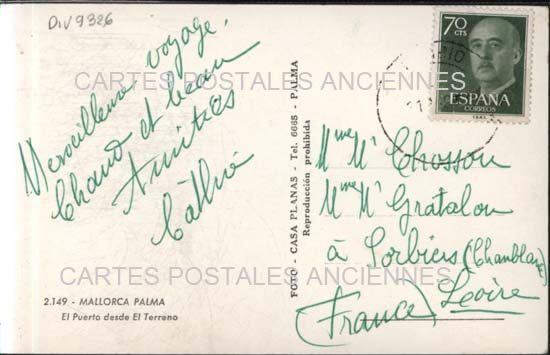 DIV9326
Merveilleux voyage.
Chaud et beau
Amitiés
70
CTS
ESPAÑA
CORREOS
CARTES POSTALES ANCIENNES
FOTO - CASA PLANAS - Tel. 6665 - PALMA
Reproducción prohibida
Mme M Chosson
Mme M Gratalon
à
(France) Loire
CARTES POSTALES ANCIENNES
2.149 - MALLORCA PALMA
El Puerto desde El Terreno